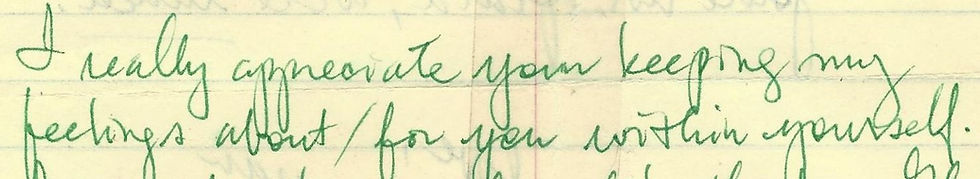 I really appreciate your keeping my
feelings about/for you within yourself.